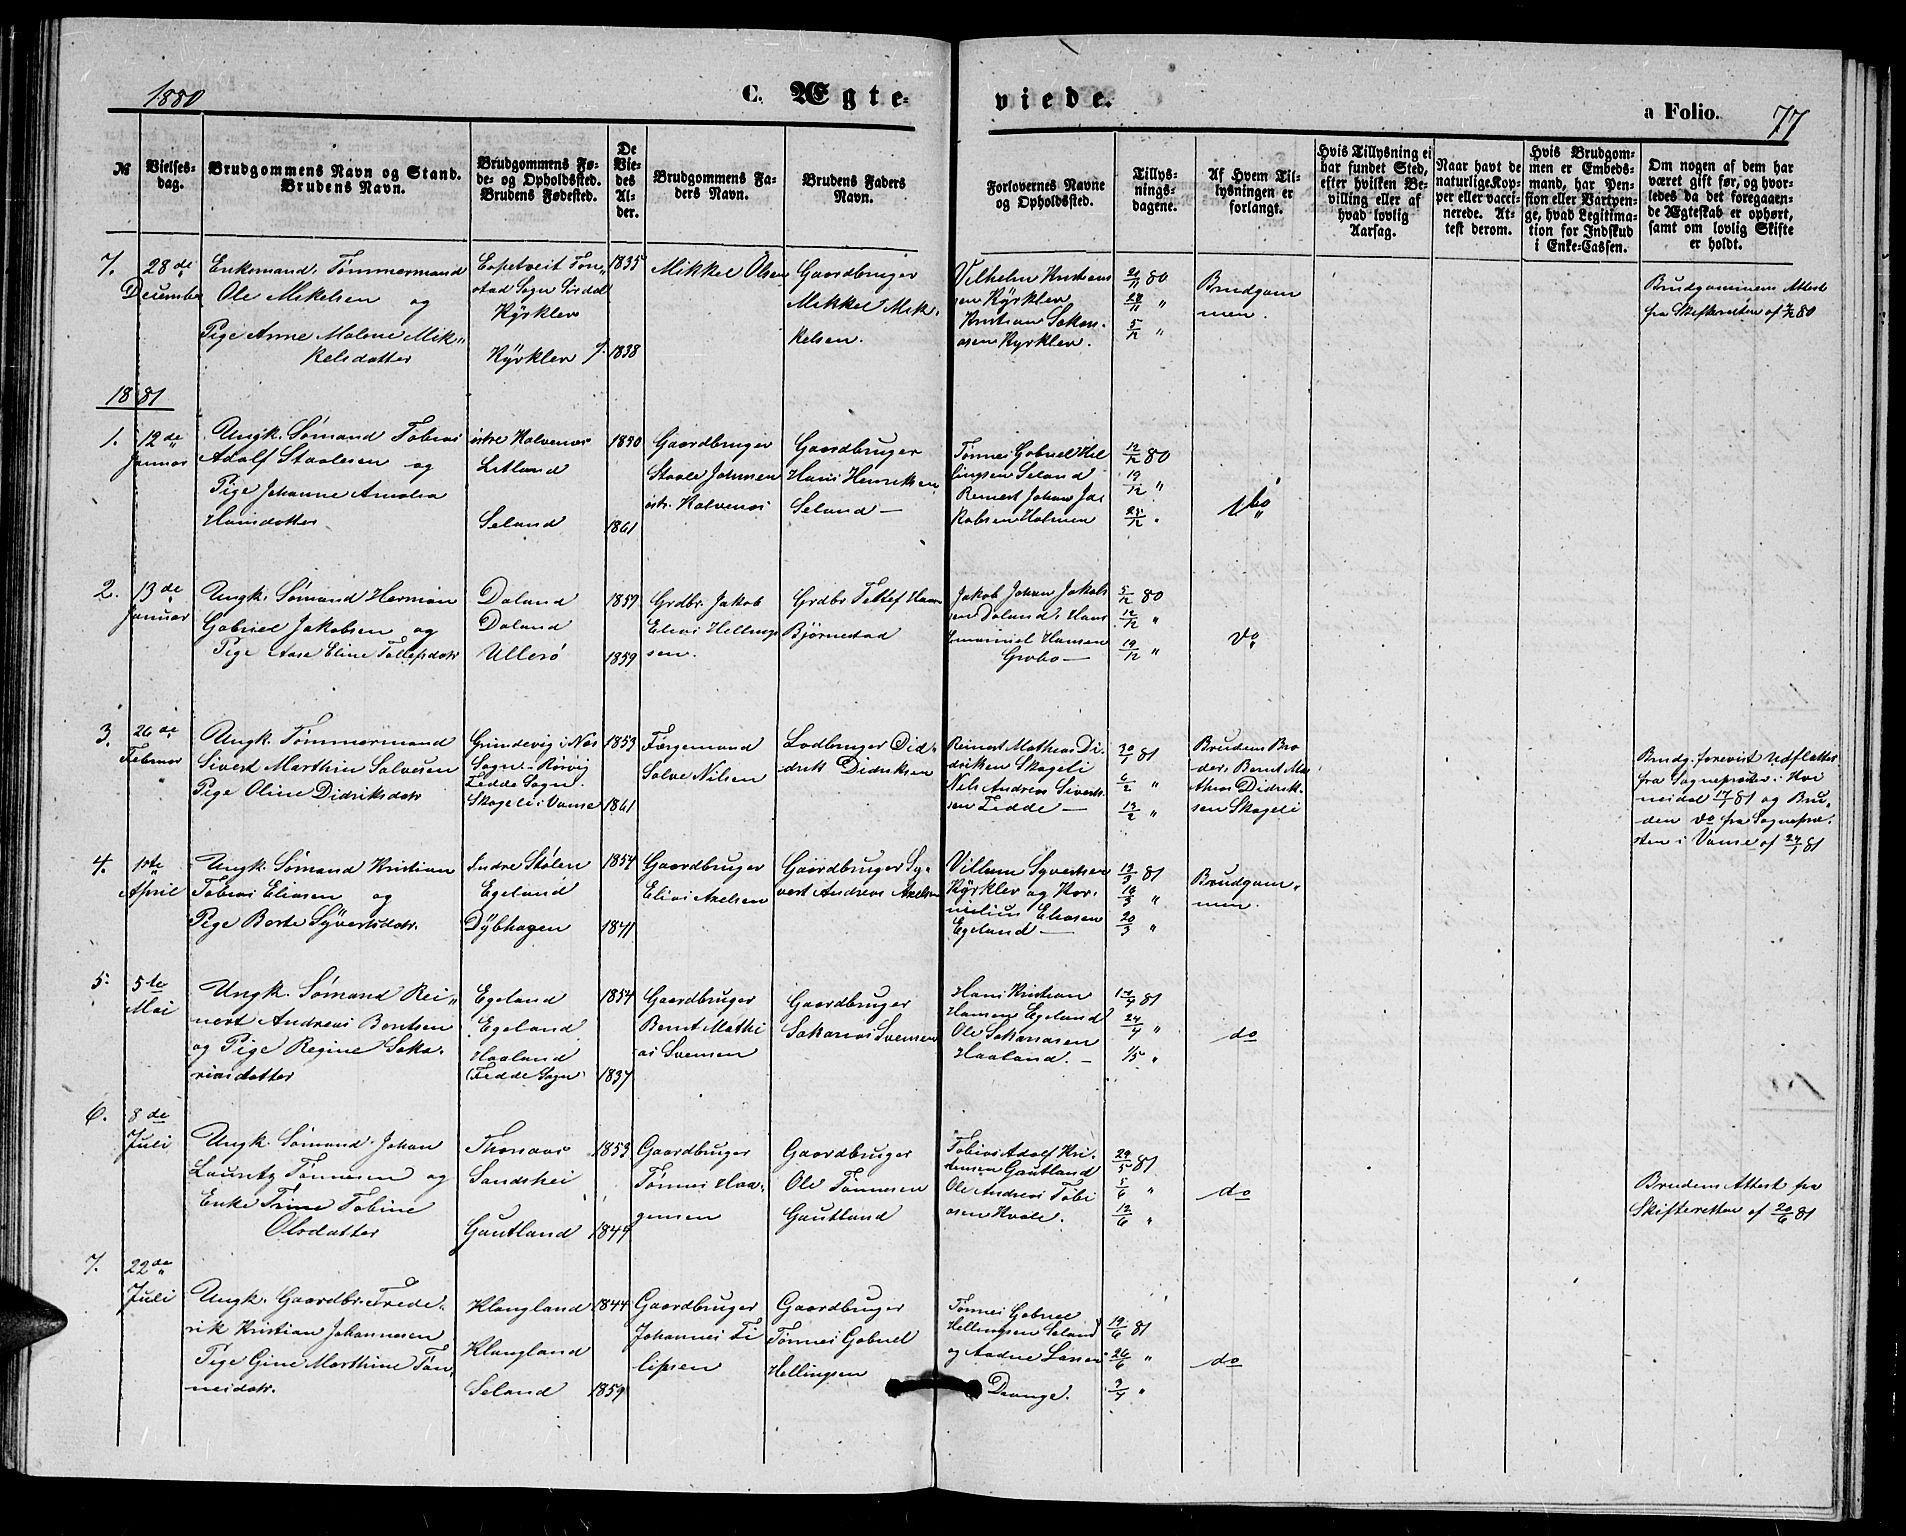 1880
C. Ægte-
viede.
a Folio.
77
№
Vielses-
dag.
Brudgommens Navn og Stand.
Brudens Navn.
Brudgommens Fø-
de- og Opholdsted.
Brudens Fødested.
De
Vie-
des
Al-
der.
Brudgommens Fa-
ders Navn.
Brudens Faders
Navn.
Forlovernes Navne
og Opholdsted.
Tillys-
nings-
dagene.
Af Hvem Til-
lysningen er
forlangt.
Hvis Tillysning ei
har fundet Sted,
efter hvilken Be-
villing eller af
hvad lovlig
Aarsag.
Naar havt de
naturlige Kop-
per eller vacci-
nerede. At-
test derom.
Hvis Brudgom-
men er Embeds-
mand, har Pen-
sion eller Vartpen-
ge, hvad Legitima-
tion for Indskud
i Enke-Cassen.
Om nogen af dem har
været gift før, og hvor-
ledes da det foregaaen-
de Ægteskab er ophørt,
samt om lovlig Skifte
er holdt.
7.
28de
December
Enkemand, Tømmermand
Ole Mikelsen og
Pige Anne Malene Mik-
kelsdatter
Eepetveit Ton-
stad Sogn Sirdal
Kyrklev
Kyrklev
1835
1838
Mikkel Olsen
Gaardbruger
Mikkel Mik-
kelsen.
Vilhelm Kristian
sen Kyrklev
Kristian Sakari-
asen Kyrklev.
21/11 80
28/11 "
5/12 "
Brudgom
men.
Brudgommens Attest
fra Skifteretten af 7/12 80
1881
1.
12de
Januar
Ungk. Sømand Tobias
Adolf Staalesen og
Pige Johanne Amalia
Hansdatter
istre Kalvenes
Letland
Seland
1850
1861
Gaardbruger
Staale Johnsen
istr. Kalvenes
Gaardbruger
Hans Henriksen
Seland —
Tønnes Gabriel Hel
lingsen Seland
Reinert Johan Ja-
kobsen Holmen
12/12 80
19/12 "
do
2.
13de
Januar
Ungk. Sømand Herman
Gabriel Jakobsen og
Pige Aase Eline Tollefsdatr
Daland
Daland
Ullerø
1857
1859
Grdbr. Jakob
Elias Hellings
sen.
Grdbr Tellef Hans
Bjørnestad
Jakob Johan Jakob
sen Daland, Hans
Emanuel Hansen
Grobo —
5/12 80
12/12 "
19/12 "
do
3.
26de
Februar
Ungk. Tømmermand
Sivert Marthin Salvesen
Pige Oline Didriksdatr
Grundevig i Næs
Sogn - Rørvig
Fedde Sogn.
Skageli i Vanse
1853
1861
Færgemand
Salve Nilsen
Lodbruger Did-
drik Didriksen
Reinert Mathias Di-
driksen Skageli
Nils Andreas Siverts
sen Fedde —
30/1 81
6/2 "
13/2 "
Brudens Bro
der, Bernt Ma-
thias Didrik-
sen Skageli
Brudg. forevist Udflatter
fra Sognepresten i Kvi
nesdal 17/1 81 og Bru-
den do fra Sognepre-
sten i Vanse af 24/1 81
4.
1ste
April
Ungk. Sømand Kristian
Tobias Eliasen og
Pige Berte Syvertsdatr.
Indre Stølen
Egeland
Dybhagen
1854
1841
Gaardbruger
Elias Axelsen
Gaardbruger Sy-
vert Andreas Axelsen
Villum Syvertsen
Kyrklev og Kor-
nelius Eliasen
Egeland —
13/3 81
18/3 "
20/3 "
Brudgom-
men.
5.
5te
Mai
Ungk. Sømand Rei-
nert Andreas Berntsen
og Pige Regine Saka-
riasdatter
Egeland
Egeland
Haaland
(Fedde Sogn)
1854
1837
Gaardbruger
Bernt Mathi
as Svensen
Gaardbruger
Sakarias Svensen
Hans Kristian
Hansen Egeland
Ole Sakariasen
Haaland. —
17/4 81
24/4 "
1/5 "
do
6.
8de
Juli
Ungk. Sømand Johan
Lauritz Tønnesen og
Enke Trine Tobine
Olsdatter
Thonaas
Sandshei
Gautland
1853
1844
Gaardbruger
Tønnes Haa-
gensen
Gaardbruger
Ole Tønnesen
Gautland
Tobias Adolf Kri-
stensen Gautland
Ole Andreas Tobi
asen Kvale.
29/5 81
5/6 "
12/6 "
do
Brudens Attest fra
Skifteretten af 20/6 81
7.
22de
Juli
Ungk. Gaardbr. Frede-
rik Kristian Johannesen
Pige Gine Marthine Tøn-
nesdatr.
Klungland
Klungland
Seland
1844
1859
Gaardbruger
Johannes Fi
lipsen
Gaardbruger
Tønnes Gabriel
Hellingsen
Tønnes Gabriel
Hellingsen Seland
og Aadne Larsen
Drange.
19/6 81
26/6 "
3/7 "
do